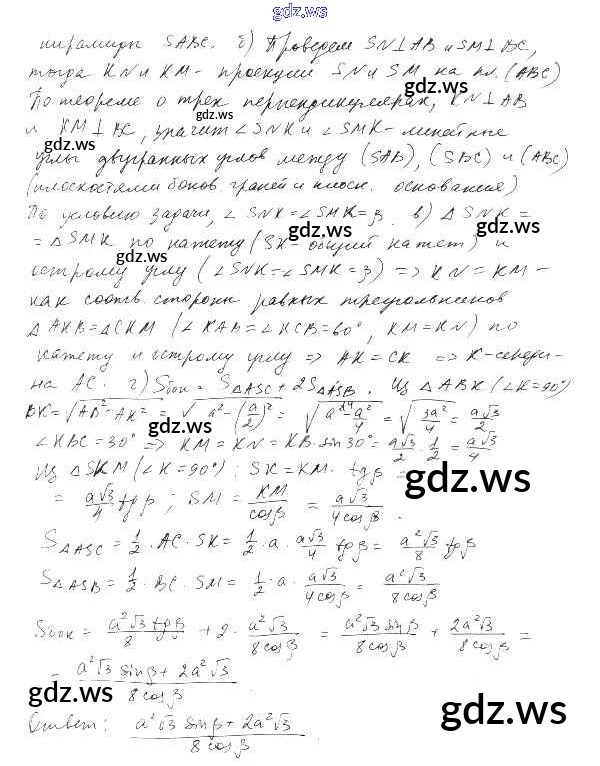 gdz.ws
пирамиды SABC. б) Проведем SN⊥AB и SM⊥BC,
тогда KN и KM - проекции SN и SM на пл. (ABC)
gdz.ws
По теореме о трех перпендикулярах, KN⊥AB
gdz.ws
и KM⊥BC, значит ∠SNK и ∠SMK - линейные
углы двугранных углов между (SAB), (SBC) и (ABC)
gdz.ws
(плоскостями боков граней и плоск. основания)
По условию задачи, ∠SNK=∠SMK=β. в) △SNK=
gdz.ws
gdz.ws
=△SMK по катету (SK - общий катет) и
острому углу (∠SNK=∠SMK=β) => KN=KM -
как соотв. стороны равных треугольников
△AKB=△CKM (∠KAB=∠KCB=60°, KM=KN) по
катету и острому углу => AK=CK => K-середи-
на AC. г) Sбок = S△ASC + 2S△ASB. Из △ABK (∠K=90°)
BK=√(AB²-AK²) = √(a²-(a/2)²) = √((a²·4-a²)/4) = √(3a²/4) = a√3/2
∠KBC=30° => KM=KN=KB·sin30°= a√3/2 · 1/2 = a√3/4
Из △SKM (∠K=90°): SK=KM·tgβ =
gdz.ws
= a√3/4 tgβ; SM = KM/cosβ = a√3/(4cosβ).
S△ASC = 1/2·AC·SK = 1/2·a·a√3/4 tgβ = a²√3/8 tgβ
S△ASB = 1/2·BC·SM = 1/2·a·a√3/(4cosβ) = a²√3/(8cosβ)
Sбок = a²√3 tgβ/8 + 2·a²√3/(8cosβ) = a²√3 sinβ/(8cosβ) + 2a²√3/(8cosβ) =
= (a²√3 sinβ + 2a²√3)/(8cosβ)
gdz.ws
gdz.ws
Ответ: (a²√3 sinβ + 2a²√3)/(8cosβ)
gdz.ws
gdz.ws